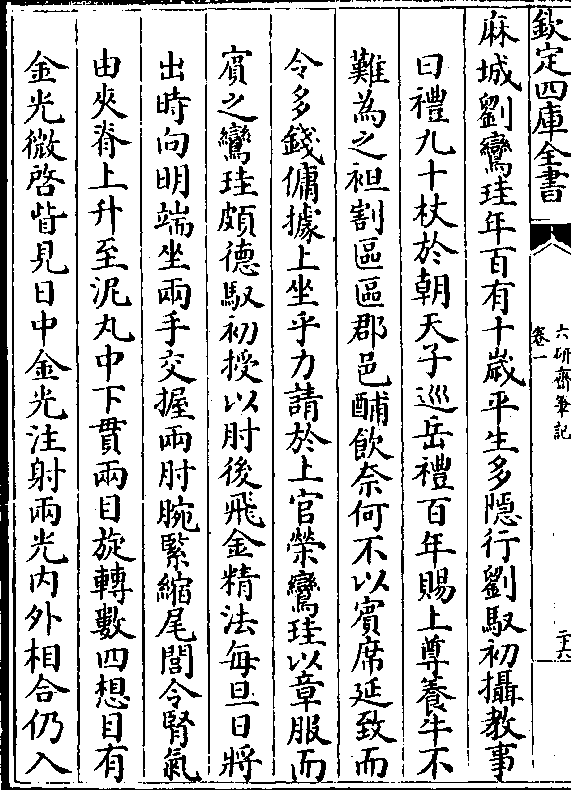 欽定四庫全書
六研齋筆記
卷一
二十六
麻城劉鸞珪年百有十歲平生多隱行劉馭初攝教事
曰禮九十杖於朝天子巡岳禮百年賜上尊養牛不
難為之袒割區區郡邑酺飲奈何不以賓席延致而
令多錢傭據上坐乎力請於上官榮鸞珪以章服而
賓之鸞珪頗德馭初授以肘後飛金精法每旦日將
出時向明端坐兩手交握兩肘腕緊縮尾閭令腎氣
由夾脊上升至泥丸中下貫兩目旋轉數四想目有
金光微啓眥見日中金光注射兩光内外相合仍入